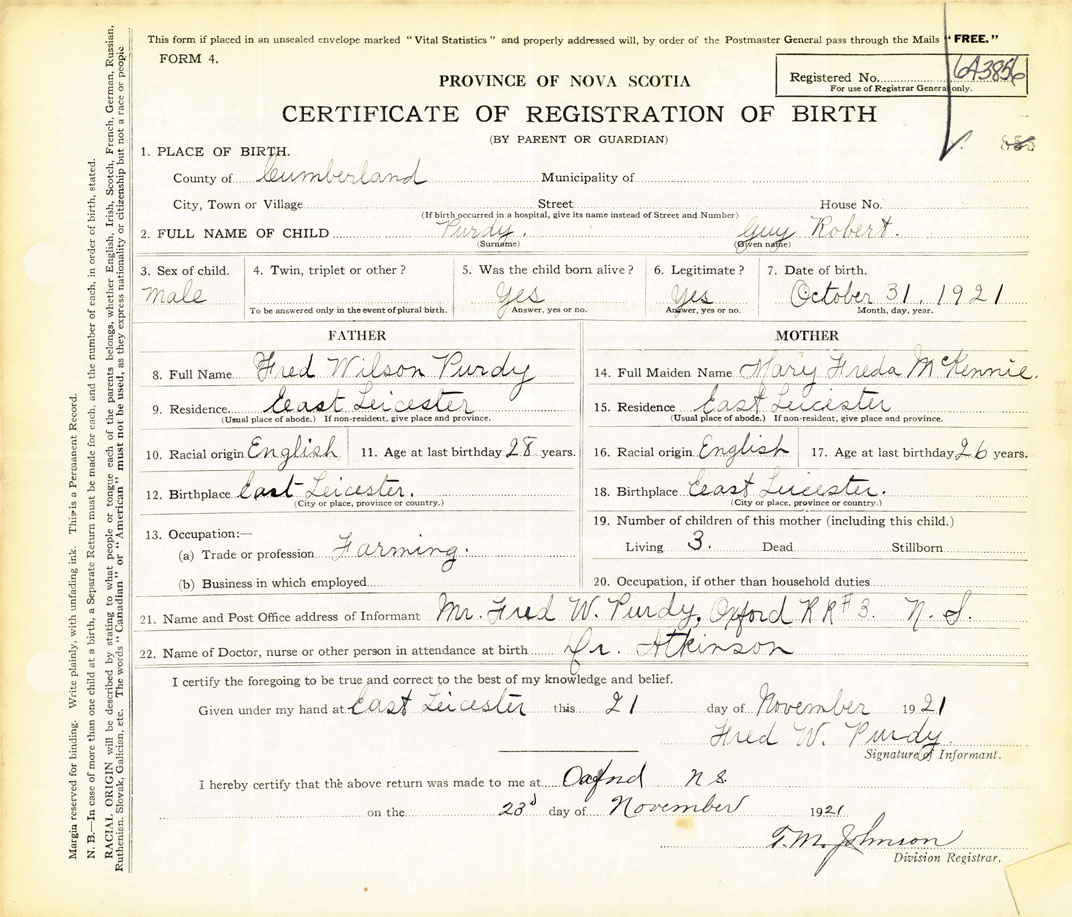 This form if placed in an unsealed envelope marked "Vital Statistics" and properly addressed will, by order of the Postmaster General pass through the Mails "FREE."
FORM 4.
Registered No. 643856
For use of Registrar General only.
PROVINCE OF NOVA SCOTIA
CERTIFICATE OF REGISTRATION OF BIRTH
(BY PARENT OR GUARDIAN)
1. PLACE OF BIRTH.
County of Cumberland Municipality of
City, Town or Village Street House No.
(If birth occurred in a hospital, give its name instead of Street and Number)
2. FULL NAME OF CHILD Purdy. Guy Robert.
(Surname) (Given name)
3. Sex of child. 4. Twin, triplet or other? 5. Was the child born alive? 6. Legitimate? 7. Date of birth.
male Yes Yes October 31, 1921
To be answered only in the event of plural birth. Answer, yes or no. Answer, yes or no. Month, day, year.
FATHER MOTHER
8. Full Name Fred Wilson Purdy 14. Full Maiden Name Mary Freda McKennie.
9. Residence East Leicester 15. Residence East Leicester
(Usual place of abode.) If non-resident, give place and province. (Usual place of abode.) If non-resident, give place and province.
10. Racial origin English 11. Age at last birthday 28 years. 16. Racial origin English 17. Age at last birthday 26 years.
12. Birthplace East Leicester. 18. Birthplace East Leicester.
(City or place, province or country.) (City or place, province or country.)
13. Occupation:— 19. Number of children of this mother (including this child.)
(a) Trade or profession Farming. Living 3. Dead Stillborn
(b) Business in which employed 20. Occupation, if other than household duties
21. Name and Post Office address of Informant Mr. Fred W. Purdy, Oxford RR # 3. N. S.
22. Name of Doctor, nurse or other person in attendance at birth Dr. Atkinson
I certify the foregoing to be true and correct to the best of my knowledge and belief.
Given under my hand at East Leicester this 21 day of November 1921
Fred W. Purdy.
Signature of Informant.
I hereby certify that the above return was made to me at Oxford N S.
on the 23d day of November 1921
T. M. Johnson
Division Registrar.
Margin reserved for binding. Write plainly, with unfading ink. This is a Permanent Record.
N. B.—In case of more than one child at a birth, a Separate Return must be made for each, and the number of each, in order of birth, stated.
RACIAL ORIGIN will be described by stating to what people or tongue each of the parents belongs, whether English, Irish, Scotch, French, German, Russian,
Ruthenian, Slovak, Galician, etc. The words "Canadian" or "American" must not be used, as they express nationality or citizenship but not a race or people